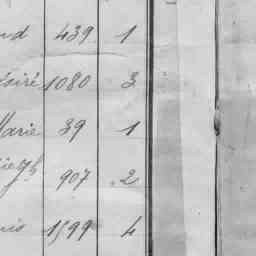 nd 439 1
ésiré 1080 3
Marie 39 1
907 2
uis 1599 4